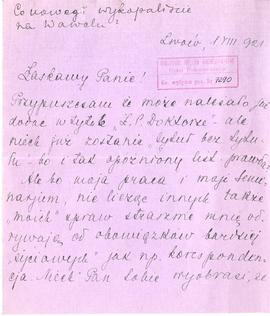 Co nowego wykopaliście
na Wawelu?
Lwów, 1 VIII 921
7290
Łaskawy Panie!
Przypuszczam że może należało już
dobrze w tytule "Z. P. Doktorze", ale
niech już zostanie "tytuł bez tytu-
łu" bo i tak opóźniony list
Ale bo moja praca i moje Semi-
narjum, nie licząc innych także
"moich" spraw strasznie mnie od-
rywają od obowiązków bardziej
"życiowych" jak np. koresponden-
cja. Niech Pan sobie wyobrazi, że